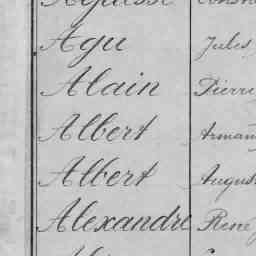 Agu Jules
Alain Pierre
Albert Arman
Albert August
Alexandre René